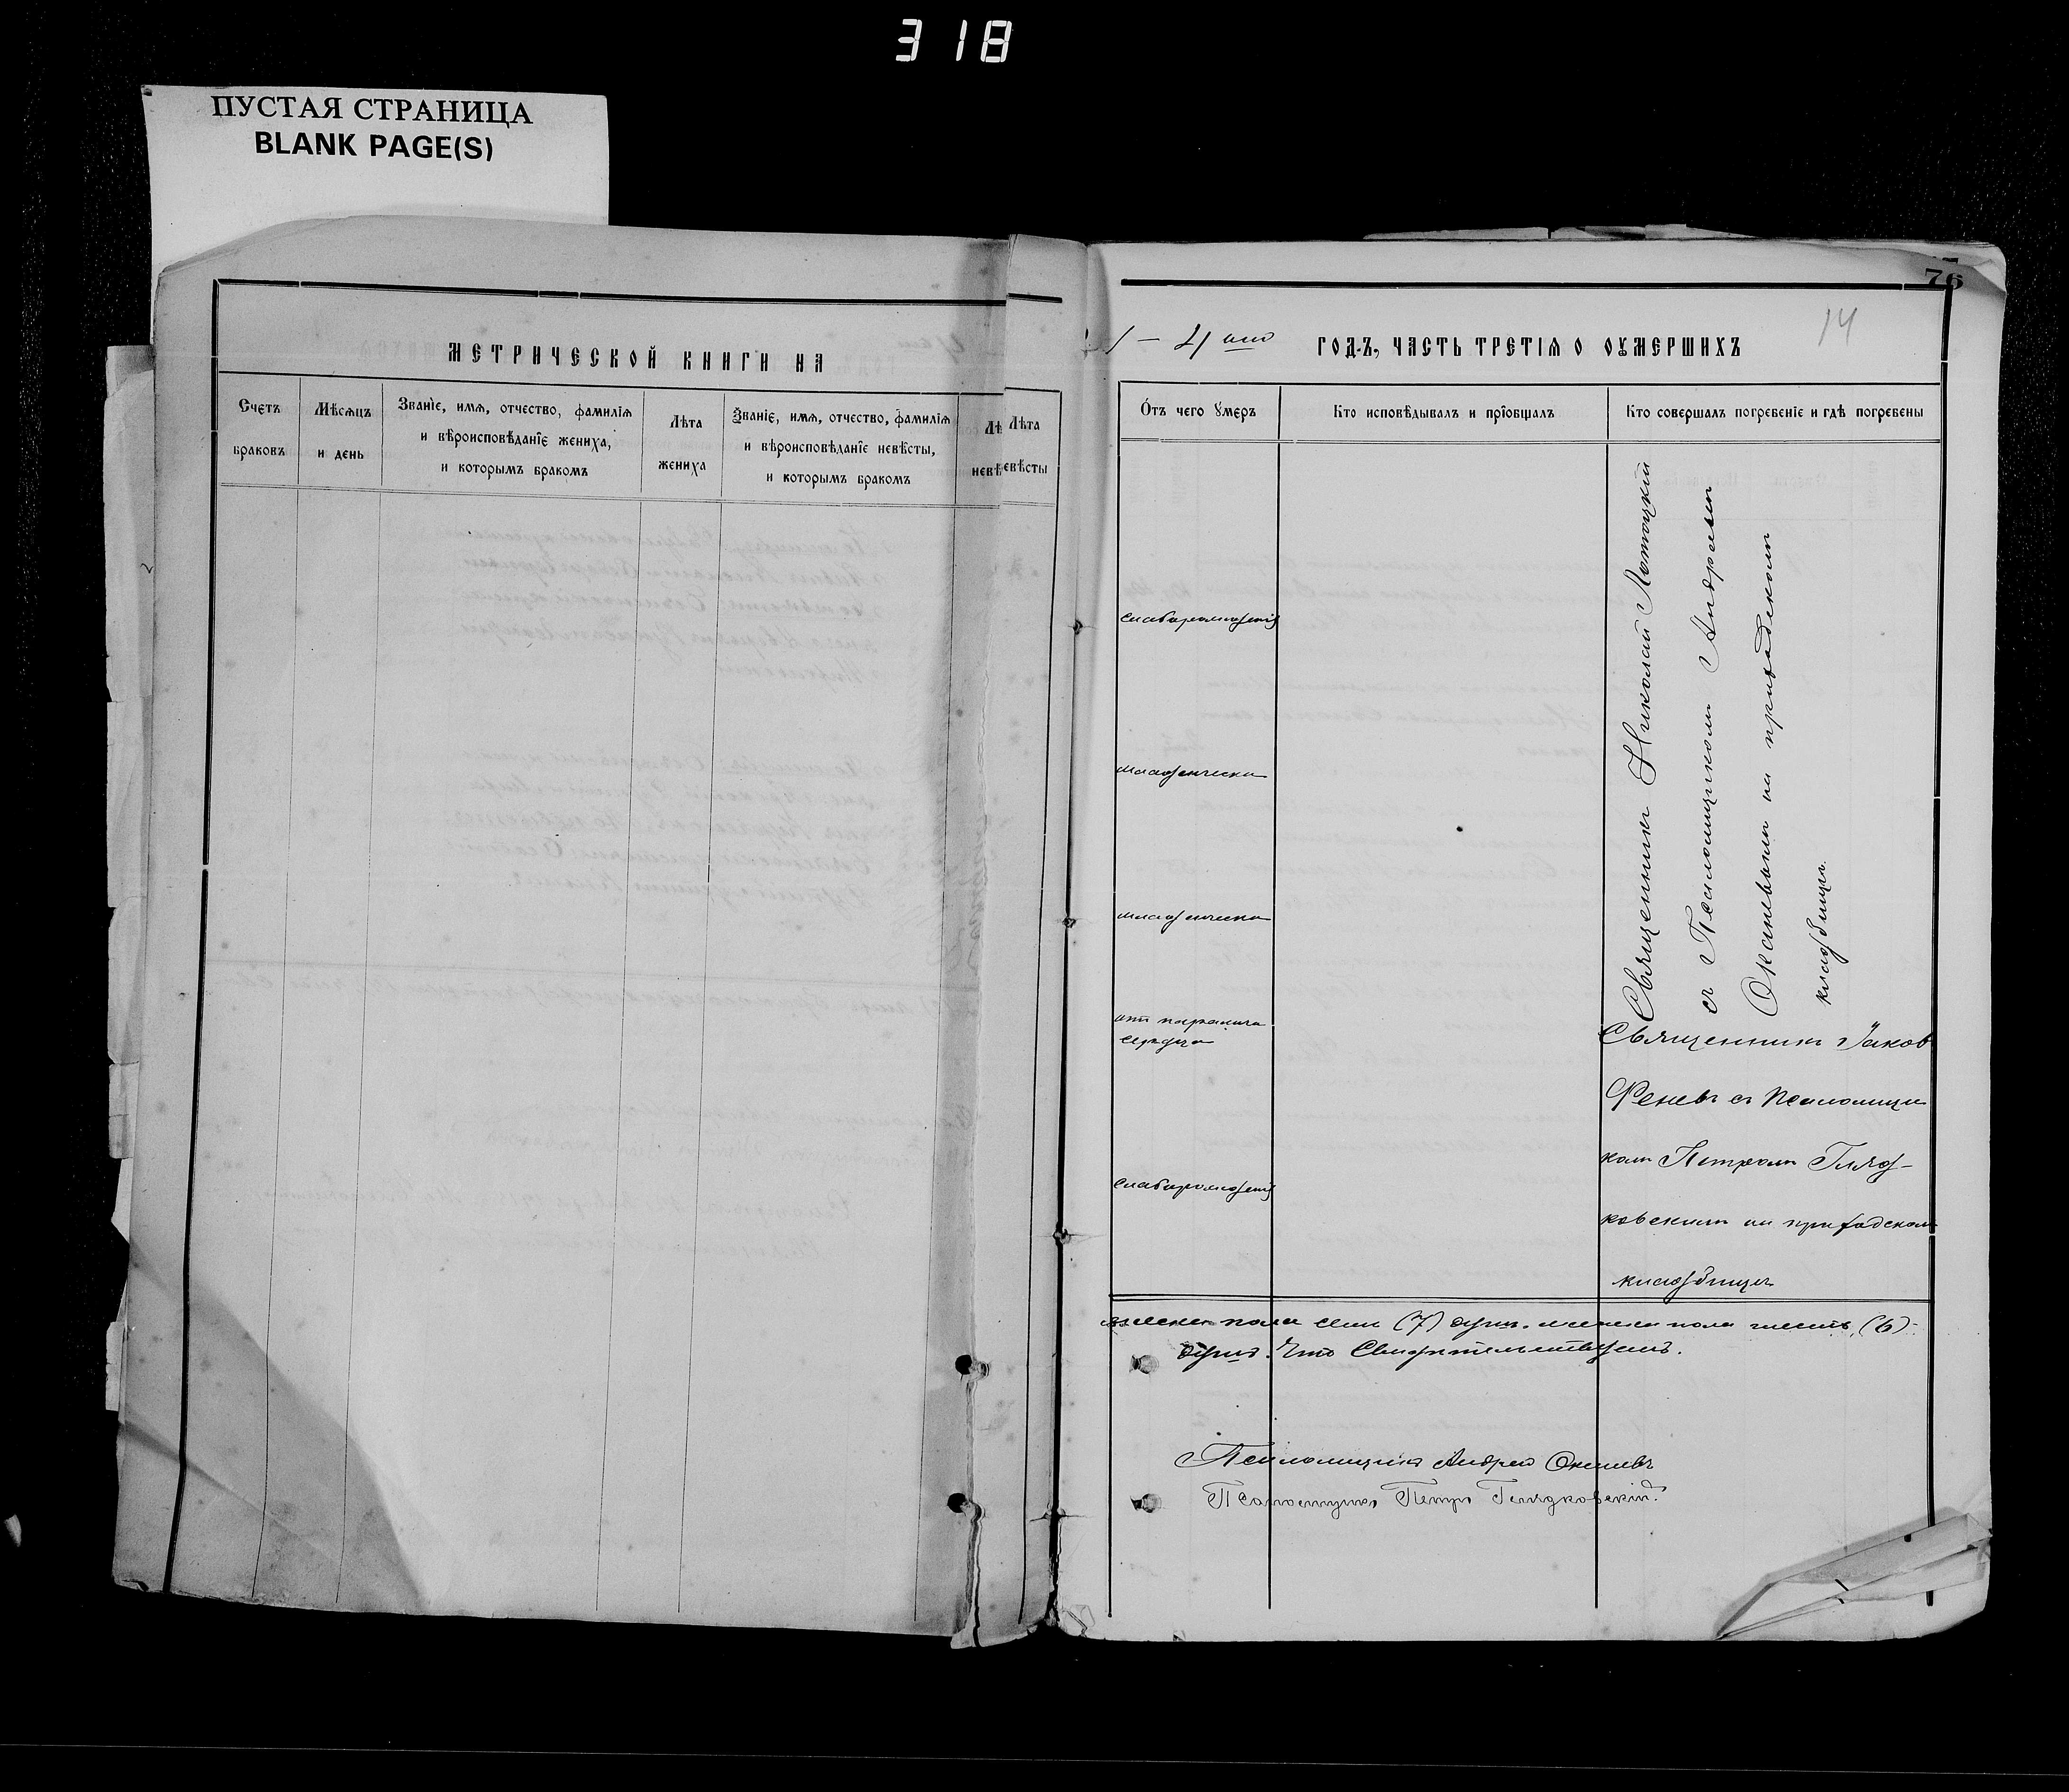 318
ПУСТАЯ СТРАНИЦА
BLANK PAGE(S)
МЕТРИЧЕСКОЙ КНИГИ НА
Счетъ браковъ
Мѣсяцъ и день
Званіе, имя, отчество, фамилія
и вѣроисповѣданіе жениха,
и которымъ бракомъ
Лѣта жениха
Званіе, имя, отчество, фамилія
и вѣроисповѣданіе невѣсты,
и которымъ бракомъ
Лѣ
невѣ
Лѣта
евѣсты
76
14
ГОДЪ, ЧАСТЬ ТРЕТІЯ О ОУМЕРШИХЪ
Отъ чего умеръ
Кто исповѣдывалъ и пріобщалъ
Кто совершалъ погребеніе и гдѣ погребены
слаборожденія
младенческая
младенческая
отъ паралича
сердца
слаборожденія
Священникъ Николай Лотоцкій
съ Псаломщикомъ Андреемъ
на приходскомъ
кладбищѣ.
Священникъ Іаковъ
съ псаломщи
комъ Петромъ Гляд-
ковскимъ на приходскомъ
кладбищѣ
пола семь (7) душъ. женска пола шесть (6)
душъ. Что Свидѣтельствуемъ.
Псаломщикъ Андрей
Псаломщикъ Петръ Глядковскій.